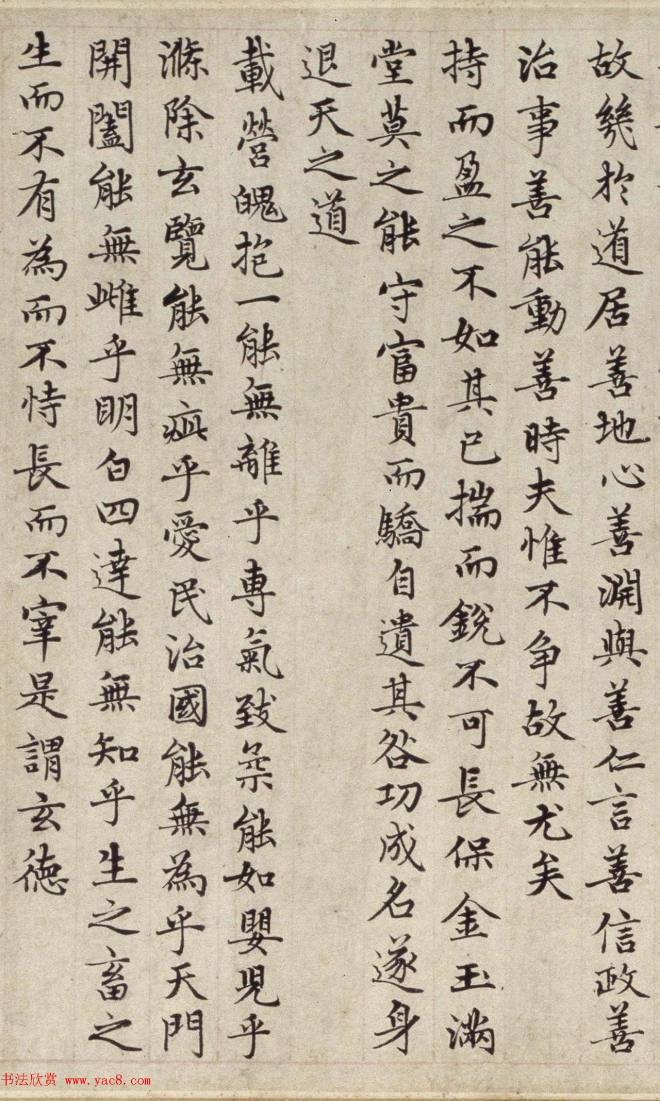 故幾於道居善地心善淵與善仁言善信政善
治事善能動善時夫惟不爭故無尤矣
持而盈之不如其已揣而銳不可長保金玉滿
堂莫之能守富貴而驕自遺其咎功成名遂身
退天之道
載營魄抱一能無離乎專氣致柔能如嬰兒乎
滌除玄覽能無疵乎愛民治國能無為乎天門
開闔能無雌乎明白四達能無知乎生之畜之
生而不有為而不恃長而不宰是謂玄德
书法欣赏 www.yac8.com